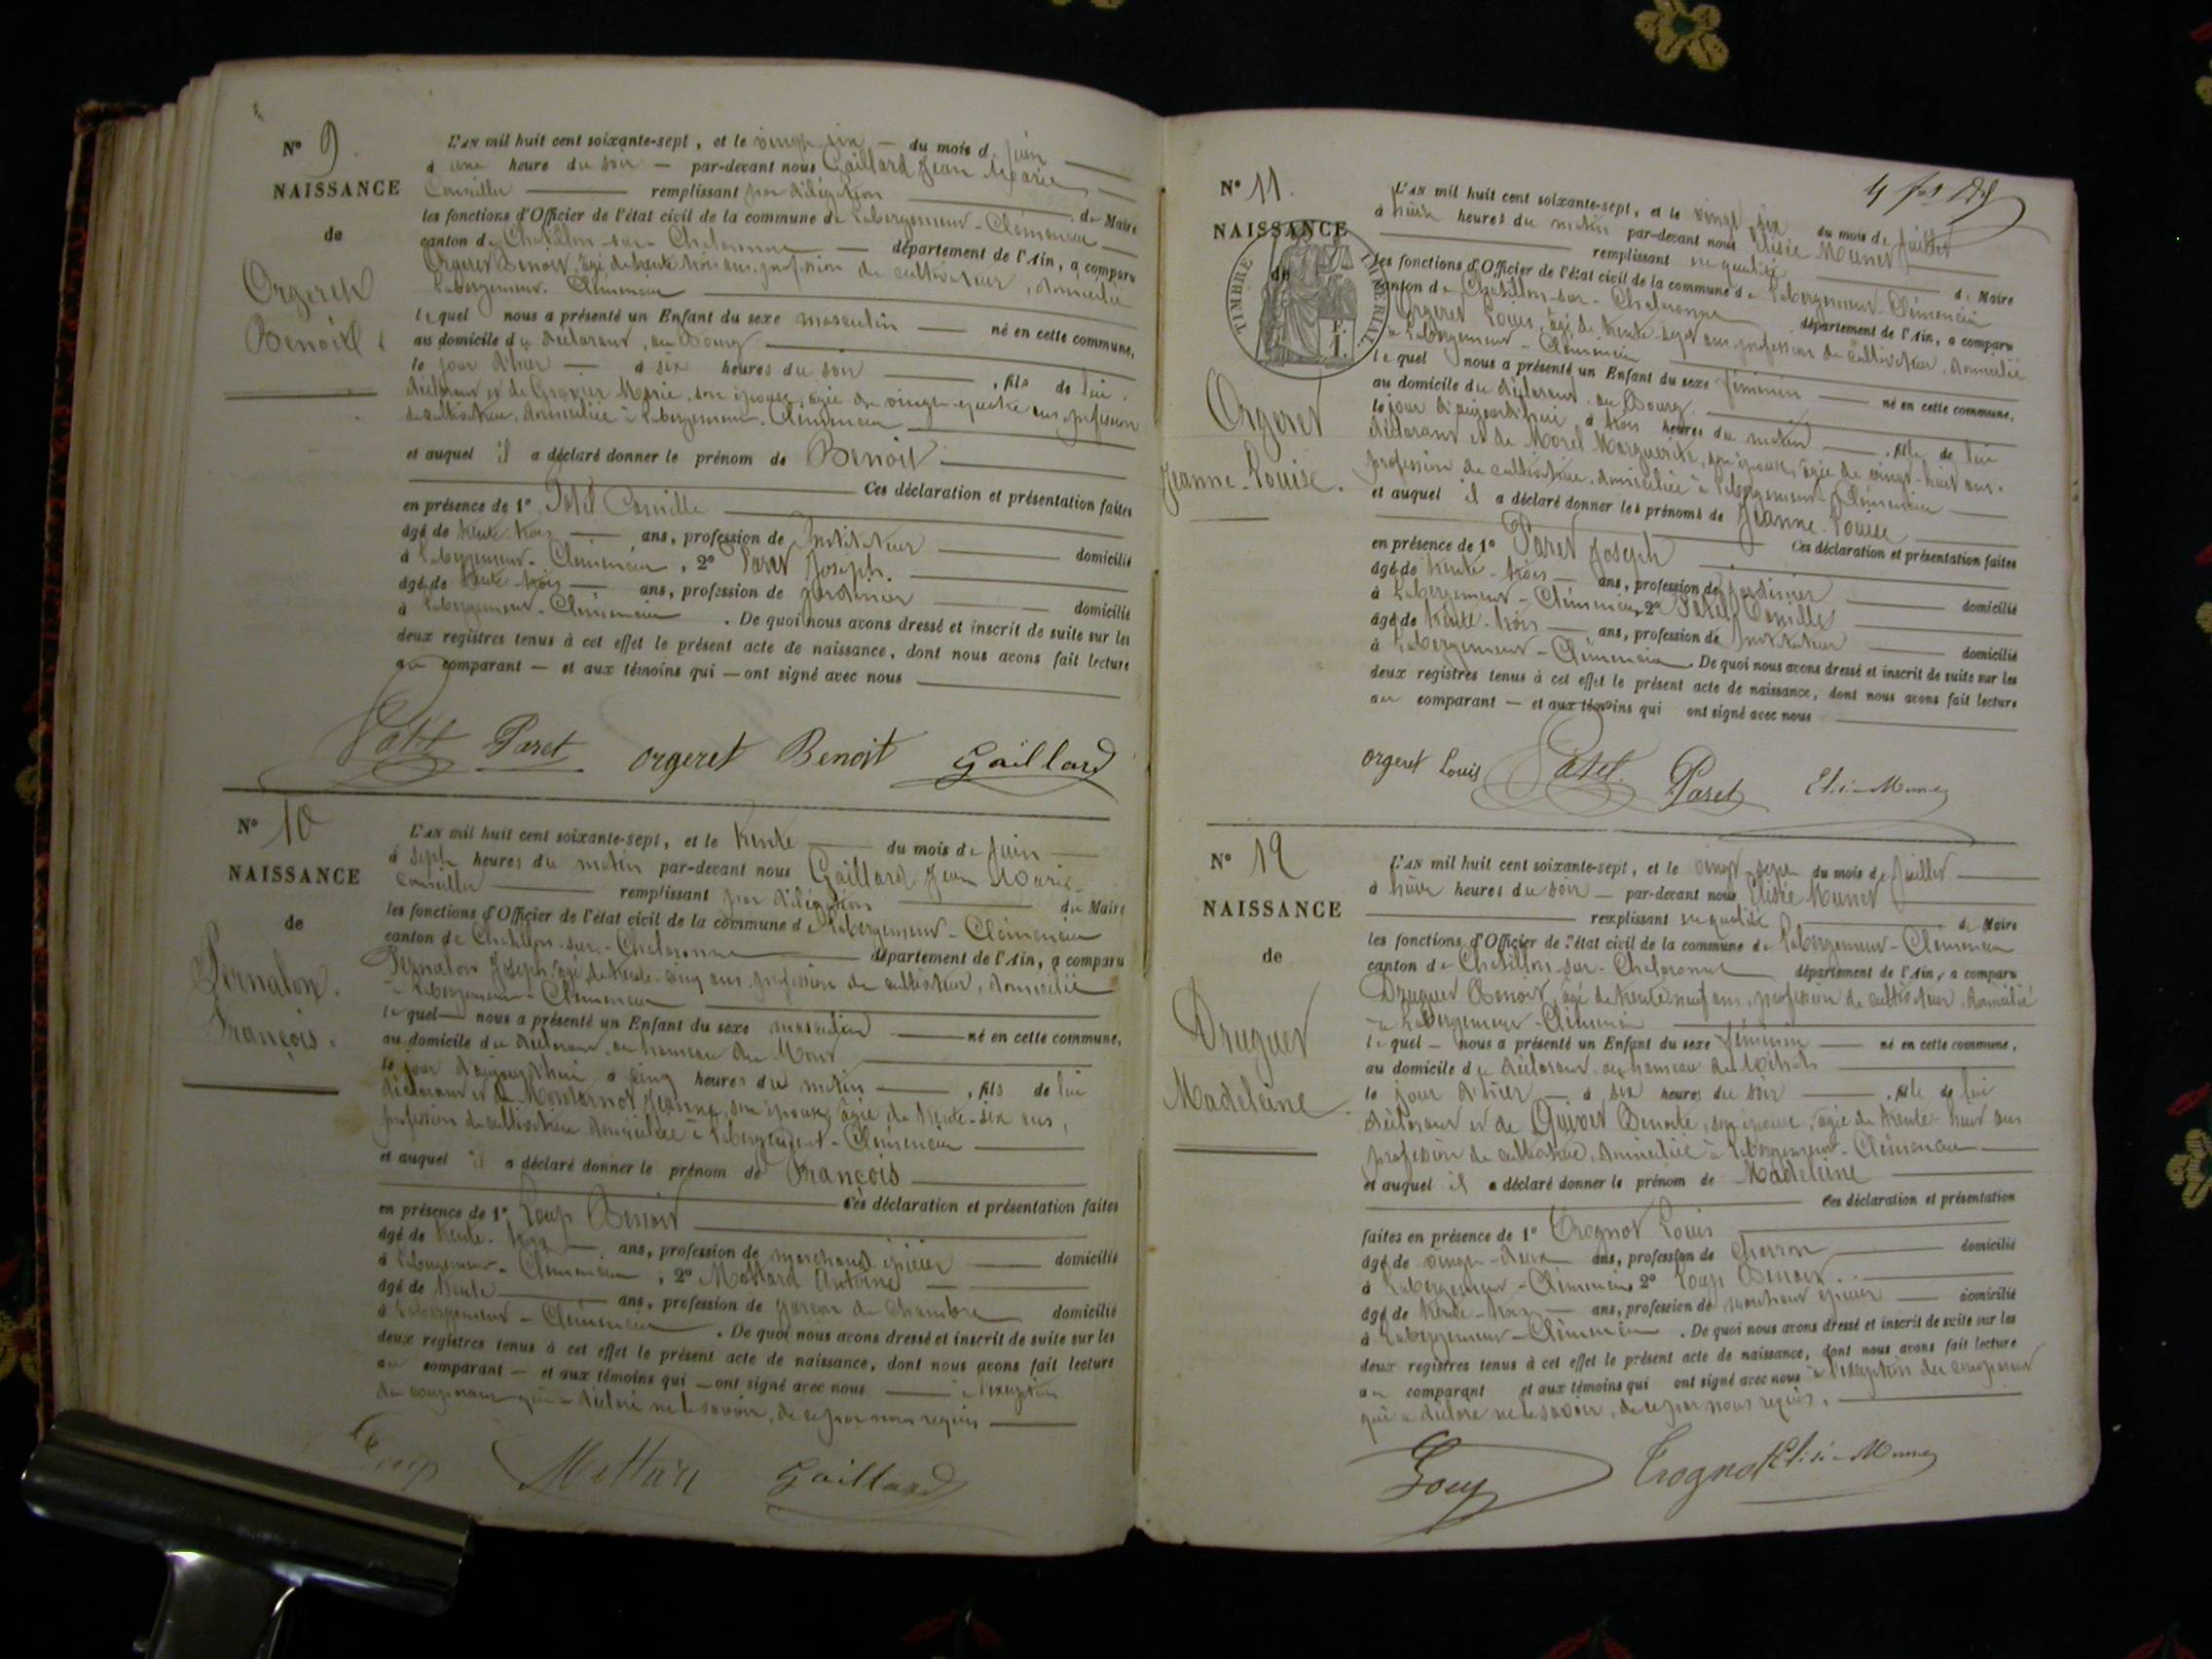 N° 9.
NAISSANCE
de
Orgeret
Benoit
L'AN mil huit cent soixante-sept, et le vingt six du mois de Juin
à une heure du soir par-devant nous Gaillard Jean Marie
Conseiller remplissant par délégation de Maire
les fonctions d'Officier de l'état civil de la commune de Labergement-Clémenciat
canton de Chatillon-sur-Chalaronne département de l'Ain, a comparu
Orgeret Benoit, âgé de trente trois ans, profession de cultivateur, domicilié
Labergement-Clémenciat
lequel nous a présenté un Enfant du sexe masculin né en cette commune,
au domicile du déclarant, au Bourg
le jour d'hier à six heures du soir, fils de lui
déclarant et de Gravier Marie, son épouse, âgée de vingt-quatre ans, profession
de cultivatrice, domiciliée à Labergement-Clémenciat
et auquel il a déclaré donner le prénom de Benoit
Ces déclaration et présentation faites
en présence de 1° Petit Camille
âgé de trente-trois ans, profession de Instituteur domicilié
à Labergement-Clémenciat, 2° Paret Joseph
âgé de trente-trois ans, profession de jardinier domicilié
à Labergement-Clémenciat. De quoi nous avons dressé et inscrit de suite sur les
deux registres tenus à cet effet le présent acte de naissance, dont nous avons fait lecture
au comparant et aux témoins qui ont signé avec nous
Petit Paret orgeret Benoit Gaillard
N° 10
NAISSANCE
de
Pernalon.
François.
L'AN mil huit cent soixante-sept, et le trente du mois de Juin
à sept heures du matin par-devant nous Gaillard Jean Marie
Conseiller remplissant par délégation du Maire
les fonctions d'Officier de l'état civil de la commune de Labergement-Clémenciat
canton de Chatillon-sur-Chalaronne département de l'Ain, a comparu
Pernalon Joseph, âgé de trente-cinq ans, profession de cultivateur, domicilié
à Labergement-Clémenciat
lequel nous a présenté un Enfant du sexe masculin né en cette commune,
au domicile du déclarant, au hameau du Mont
le jour d'aujourd'hui à cinq heures du matin, fils de lui
déclarant et de Montarnot Jeanne, son épouse, âgée de trente-six ans,
profession de cultivatrice domiciliée à Labergement-Clémenciat
et auquel il a déclaré donner le prénom de François
Ces déclaration et présentation faites
en présence de 1° Loup Benoit
âgé de trente-trois ans, profession de marchand épicier domicilié
à Labergement-Clémenciat, 2° Mottard Antoine
âgé de trente ans, profession de garçon de chambre domicilié
à Labergement-Clémenciat. De quoi nous avons dressé et inscrit de suite sur les
deux registres tenus à cet effet le présent acte de naissance, dont nous avons fait lecture
au comparant et aux témoins qui ont signé avec nous à l'exception
du comparant qui a déclaré ne le savoir, de ce par nous requis
Loup Gaillard
N° 11.
NAISSANCE
de
TIMBRE IMPÉRIAL
Orgeret
Jeanne-Louise.
L'AN mil huit cent soixante-sept, et le vingt six du mois de Juillet
à huit heures du matin par-devant nous Elisée Munet
remplissant en qualité de Maire
les fonctions d'Officier de l'état civil de la commune de Labergement-Clémenciat
canton de Chatillon-sur-Chalaronne département de l'Ain, a comparu
Orgeret Louis, âgé de trente-sept ans, profession de cultivateur, domicilié
à Labergement-Clémenciat
lequel nous a présenté un Enfant du sexe féminin né en cette commune,
au domicile du déclarant, au Bourg.
le jour d'aujourd'hui à trois heures du matin, fille de lui
déclarant et de Morel Marguerite, son épouse, âgée de vingt-huit ans.
profession de cultivatrice, domiciliée à Labergement-Clémenciat
et auquel il a déclaré donner les prénoms de Jeanne-Louise
Ces déclaration et présentation faites
en présence de 1° Paret Joseph
âgé de trente-trois ans, profession de jardinier domicilié
à Labergement-Clémenciat, 2° Petit Camille
âgé de trente-trois ans, profession de Instituteur domicilié
à Labergement-Clémenciat. De quoi nous avons dressé et inscrit de suite sur les
deux registres tenus à cet effet le présent acte de naissance, dont nous avons fait lecture
au comparant et aux témoins qui ont signé avec nous
orgeret Louis Petit Paret
N° 12
NAISSANCE
de
Druguet
Madeleine
L'AN mil huit cent soixante-sept, et le vingt-sept du mois de Juillet
à heures du soir par-devant nous Elisée Munet
remplissant en qualité de Maire
les fonctions d'Officier de l'état civil de la commune de Labergement-Clémenciat
canton de Chatillon-sur-Chalaronne département de l'Ain, a comparu
Druguet Benoit, âgé de trente neuf ans, profession de cultivateur, domicilié
à Labergement-Clémenciat
lequel nous a présenté un Enfant du sexe féminin né en cette commune,
au domicile du déclarant, au hameau de
le jour d'hier à six heures du soir, fille de lui
déclarant et de Guivet Benoite, son épouse, âgée de trente ans
profession de cultivatrice, domiciliée à Labergement-Clémenciat
et auquel il a déclaré donner le prénom de Madeleine
Ces déclaration et présentation
faites en présence de 1° Trognot Louis
âgé de vingt-deux ans, profession de Charron domicilié
à Labergement-Clémenciat 2° Loup Benoit
âgé de trente-trois ans, profession de marchand épicier domicilié
à Labergement-Clémenciat. De quoi nous avons dressé et inscrit de suite sur les
deux registres tenus à cet effet le présent acte de naissance, dont nous avons fait lecture
au comparant et aux témoins qui ont signé avec nous à l'exception du comparant
qui a déclaré ne le savoir, de ce par nous requis.
Loup Trognot